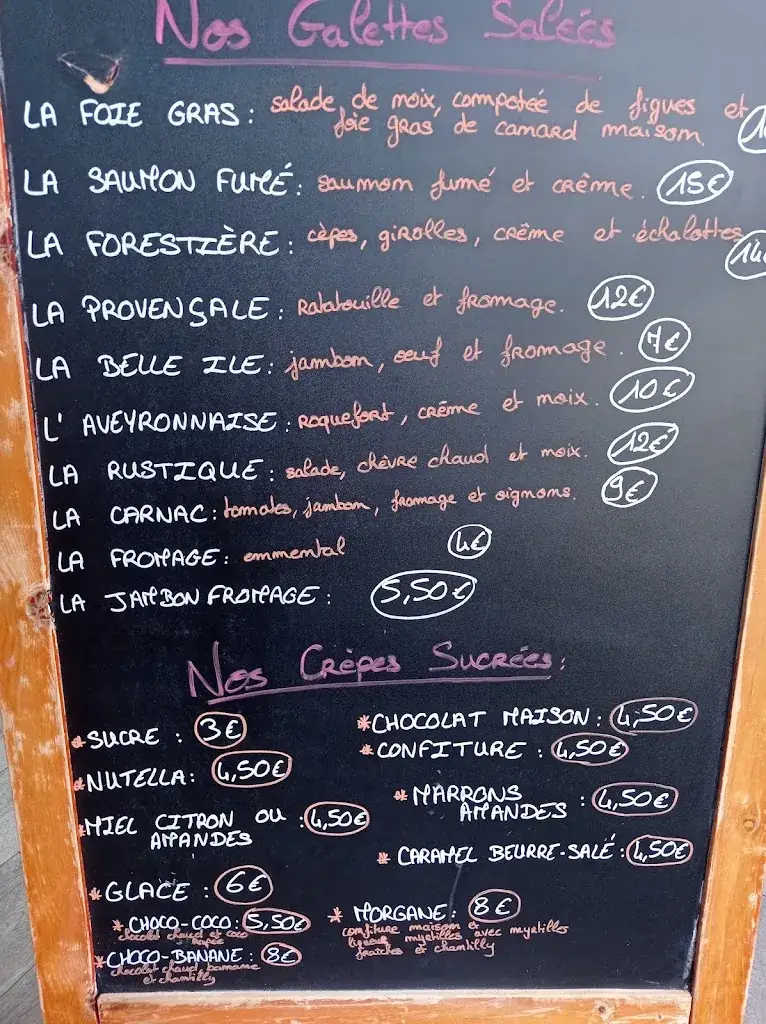 Nos Galettes Salées
LA FOIE GRAS : salade, de noix, compotéé de figues et
foie gras de canard maison
LA SAUMON FUMÉ : saumon fumé et crême. 15€
LA FORESTIÈRE : cèpes, girolles, crême et échalottes
14€
LA PROVENÇALE : Ratatouille et fromage. 12€
LA BELLE ILE : jambon, oeuf et fromage. 7€
L'AVEYRONNAISE : Roquefort, crême et noix. 10€
LA RUSTIQUE : salade, chèvre chaud et noix. 12€
LA CARNAC : tomates, jambon, fromage et oignons. 9€
LA FROMAGE : emmental 4€
LA JAMBON FROMAGE : 5,50€
Nos Crêpes Sucrées :
*SUCRE : 3€
*NUTELLA : 4,50€
*MIEL CITRON OU : 4,50€
AMANDES
*GLACE : 6€
*CHOCO-COCO : 5,50€
chocolat chaud et coco
rapée
*CHOCO-BANANE : 8€
chocolat chaud, banane
et chantilly
*CHOCOLAT MAISON : 4,50€
*CONFITURE : 4,50€
*MARRONS
AMANDES : 4,50€
* CARAMEL BEURRE-SALÉ : 4,50€
* MORGANE : 8€
confiture maison et
liqueur myrtilles avec myrtilles
fraîches et chantilly